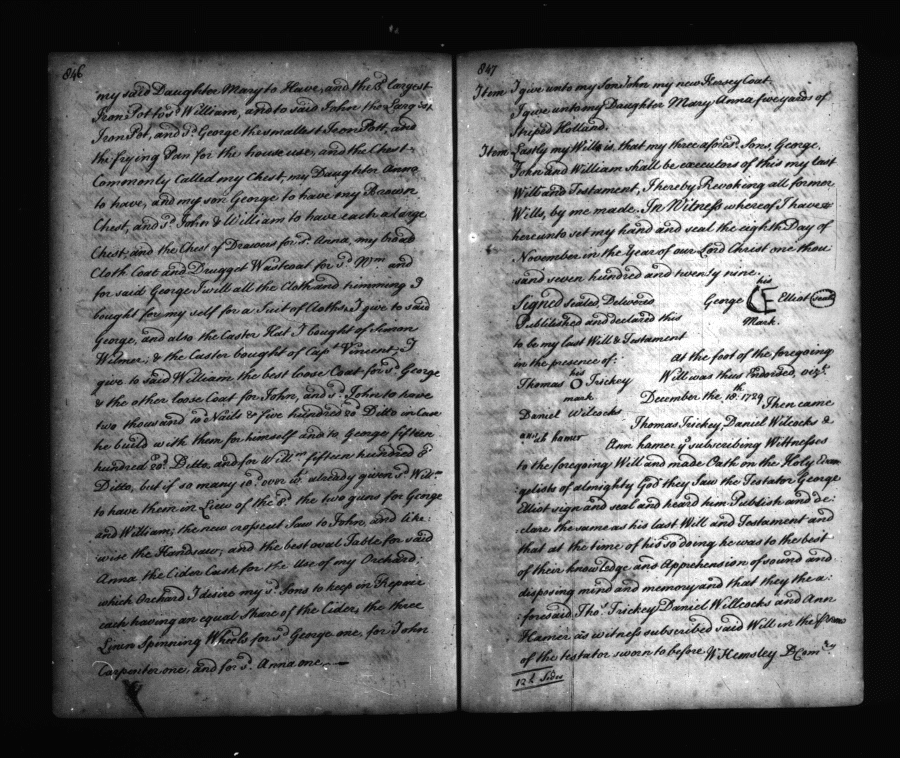 846
my said Daughter Mary to Have, and the 2d largest
Iron Pott to sd. William, and to said John the Largest
Iron Pot, and sd. George the smallest Iron Pott, and
the frying Pan for the house use, and the Chest
Commonly Called my Chest, my Daughter Anna
to have, and my son George to have my Brown
Chest, and sd. John & William to have each a large
Chest, and the Chest of Drawers for sd. Anna, my broad
Cloth Coat and Drugget Wastcoat for sd. Wm. and
for said George I will all the Cloth and trimming I
bought for my self for a Suit of Cloths, I give to said
George, and also the Castor Hat I bought of Simon
Wilmer; & the Castor bought of Capt. Vincent; I
give to said William the best loose Coat for sd. George
& the other loose Coat for John, and sd. John to have
two thousand 10d. Nails & five hundred 20d. Ditto in Case
he build with them for himself and to George fifteen
hundred 20d. Ditto, and for Willm. fifteen hundred 8d.
Ditto, but if so many 10d. over wt. already given sd. Willm.
to have them in Lieu of the 8d. the two guns for George
and William; the new crosscut Saw to John, and like:
wise the Handsaw, and the best oval Table for said
Anna the Cider Cask for the Use of my Orchard,
which Orchard I desire my sd. Sons to keep in Repair
each having an equal Share of the Cider, the three
Linen Spinning Wheels for sd. George one, for John
Carpenter one, and for sd. Anna one.
847
Item I give unto my Son John my new Kersey Coat.
I give unto my Daughter Mary Anna five yards of
Striped Holland.
Item Lastly my Will is, that my three aforesd. Sons, George,
John and William shall be executors of this my last
Will and Testament, I hereby Revoking all former
Wills, by me made. In Witness whereof I have
hereunto set my hand and seal the eighth Day of
November in the Year of our Lord Christ one thou:
sand seven hundred and twenty nine.
his
Signed sealed, Delivered George E Elliot Seal
Published and declared this Mark.
to be my last Will & Testament
in the presence of: At the foot of the foregoing
his
Thomas O Trickey Will was thus Endorsed, vizt.
mark December the 18th. 1729 Then came
Daniel Wilcocks Thomas Trickey Daniel Wilcocks &
hamer Ann hamer ye subscribing Wittnesses
to the foregoing Will and made Oath on the Holy Evan
gelists of almighty God they Saw the Testator George
Elliot sign and seal and heard him Publish and de:
clare the same as his last Will and Testament and
that at the time of his so doing he was to the best
of their knowledge and Apprehension of sound and
disposing mind and memory and that they the a:
foresaid Thos. Trickey Daniel Willcocks and Ann
Hamer as witness subscribed said Will in the
of the testator sworn to before W. Hemsley D Comry
12½ Sides